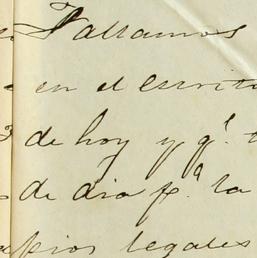 Fallamos
en el escrito
de hoy y q.^e
de dia p.^a la
pios legales